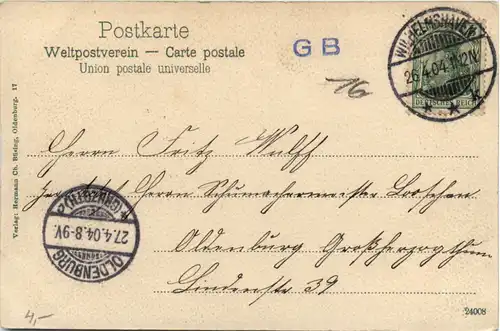 Postkarte
Weltpostverein — Carte postale
Union postale universelle
G B
16
WILHELMSHAVEN
26.4.04.11-12V.
DEUTSCHES REICH
Herrn Fritz Wulff
Herrn Schuhmachermeister Looschen
Oldenburg Großherzogthum
Lindenstr 39
OLDENBURG
27.4.04.8-9V.
(GRHZGTH.)
Verlag: Hermann Ch. Büsing, Oldenburg. 17
4,-
24008